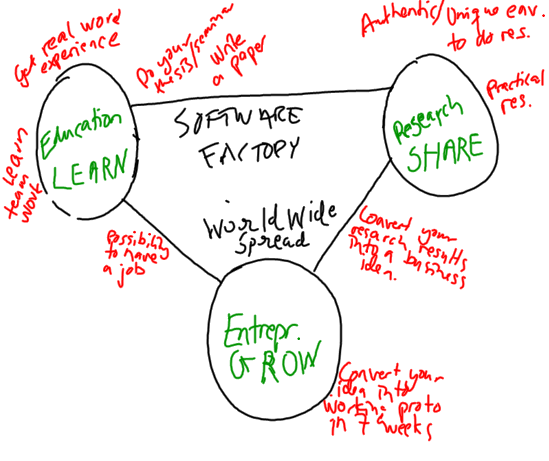 Get real word
experience
Do your
thesis/seminar
Write
a paper
Authentic/Unique env.
to do res.
Practical
res.
Education
LEARN
Learn
team
work
SOFTWARE
FACTORY
Research
SHARE
WorldWide
Spread
Possibility
to have
a job
Convert your
research results
into a business
idea.
Entrepr.
GROW
Convert your
idea into
working proto
in 7 weeks